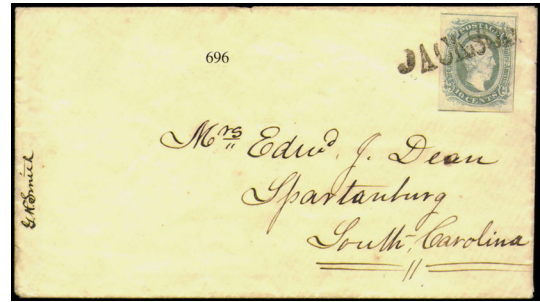 696
JACKSON
POSTAGE
10 CENTS
Mrs Edwd. J. Dean
Spartanburg
South Carolina